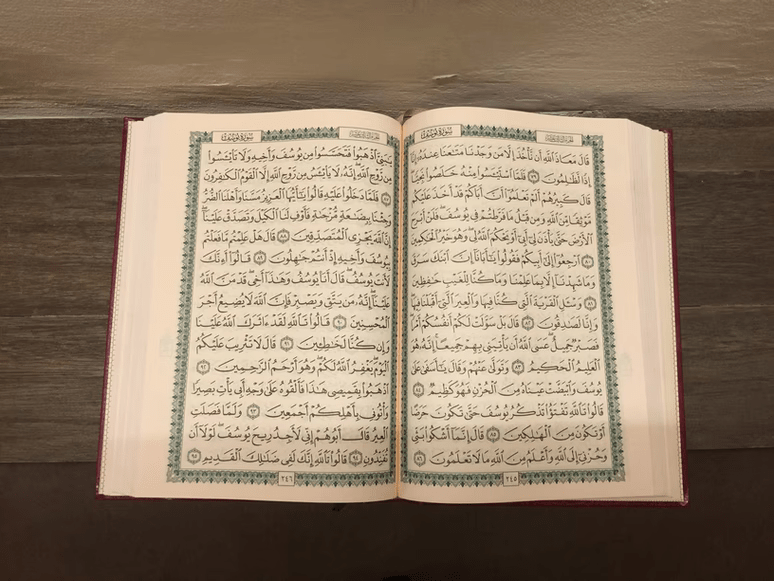 سُورَةُ يُوسُفَ
قَالَ مَعَاذَ ٱللَّهِ أَن نَّأْخُذَ إِلَّا مَن وَجَدْنَا مَتَٰعَنَا عِندَهُۥٓ إِنَّآ
إِذًا لَّظَٰلِمُونَ ٧٩ فَلَمَّا ٱسْتَيْـَٔسُوا۟ مِنْهُ خَلَصُوا۟ نَجِيًّا
قَالَ كَبِيرُهُمْ أَلَمْ تَعْلَمُوٓا۟ أَنَّ أَبَاكُمْ قَدْ أَخَذَ عَلَيْكُم
مَّوْثِقًا مِّنَ ٱللَّهِ وَمِن قَبْلُ مَا فَرَّطتُمْ فِى يُوسُفَ فَلَنْ أَبْرَحَ
ٱلْأَرْضَ حَتَّىٰ يَأْذَنَ لِىٓ أَبِىٓ أَوْ يَحْكُمَ ٱللَّهُ لِى وَهُوَ خَيْرُ ٱلْحَٰكِمِينَ
٨٠ ٱرْجِعُوٓا۟ إِلَىٰٓ أَبِيكُمْ فَقُولُوا۟ يَٰٓأَبَانَآ إِنَّ ٱبْنَكَ سَرَقَ
وَمَا شَهِدْنَآ إِلَّا بِمَا عَلِمْنَا وَمَا كُنَّا لِلْغَيْبِ حَٰفِظِينَ
٨١ وَسْـَٔلِ ٱلْقَرْيَةَ ٱلَّتِى كُنَّا فِيهَا وَٱلْعِيرَ ٱلَّتِىٓ أَقْبَلْنَا فِيهَا
وَإِنَّا لَصَٰدِقُونَ ٨٢ قَالَ بَلْ سَوَّلَتْ لَكُمْ أَنفُسُكُمْ أَمْرًا
فَصَبْرٌ جَمِيلٌ عَسَى ٱللَّهُ أَن يَأْتِيَنِى بِهِمْ جَمِيعًا إِنَّهُۥ هُوَ
ٱلْعَلِيمُ ٱلْحَكِيمُ ٨٣ وَتَوَلَّىٰ عَنْهُمْ وَقَالَ يَٰٓأَسَفَىٰ عَلَىٰ
يُوسُفَ وَٱبْيَضَّتْ عَيْنَاهُ مِنَ ٱلْحُزْنِ فَهُوَ كَظِيمٌ ٨٤
قَالُوا۟ تَٱللَّهِ تَفْتَؤُا۟ تَذْكُرُ يُوسُفَ حَتَّىٰ تَكُونَ حَرَضًا
أَوْ تَكُونَ مِنَ ٱلْهَٰلِكِينَ ٨٥ قَالَ إِنَّمَآ أَشْكُوا۟ بَثِّى
وَحُزْنِىٓ إِلَى ٱللَّهِ وَأَعْلَمُ مِنَ ٱللَّهِ مَا لَا تَعْلَمُونَ ٨٦
٢٤٥
سُورَةُ يُوسُفَ
يَٰبَنِىَّ ٱذْهَبُوا۟ فَتَحَسَّسُوا۟ مِن يُوسُفَ وَأَخِيهِ وَلَا تَا۟يْـَٔسُوا۟
مِن رَّوْحِ ٱللَّهِ إِنَّهُۥ لَا يَا۟يْـَٔسُ مِن رَّوْحِ ٱللَّهِ إِلَّا ٱلْقَوْمُ ٱلْكَٰفِرُونَ
٨٧ فَلَمَّا دَخَلُوا۟ عَلَيْهِ قَالُوا۟ يَٰٓأَيُّهَا ٱلْعَزِيزُ مَسَّنَا وَأَهْلَنَا ٱلضُّرُّ
وَجِئْنَا بِبِضَٰعَةٍ مُّزْجَىٰةٍ فَأَوْفِ لَنَا ٱلْكَيْلَ وَتَصَدَّقْ عَلَيْنَآ
إِنَّ ٱللَّهَ يَجْزِى ٱلْمُتَصَدِّقِينَ ٨٨ قَالَ هَلْ عَلِمْتُم مَّا فَعَلْتُم
بِيُوسُفَ وَأَخِيهِ إِذْ أَنتُمْ جَٰهِلُونَ ٨٩ قَالُوٓا۟ أَءِنَّكَ
لَأَنتَ يُوسُفُ قَالَ أَنَا۠ يُوسُفُ وَهَٰذَآ أَخِى قَدْ مَنَّ ٱللَّهُ
عَلَيْنَآ إِنَّهُۥ مَن يَتَّقِ وَيَصْبِرْ فَإِنَّ ٱللَّهَ لَا يُضِيعُ أَجْرَ
ٱلْمُحْسِنِينَ ٩٠ قَالُوا۟ تَٱللَّهِ لَقَدْ ءَاثَرَكَ ٱللَّهُ عَلَيْنَا
وَإِن كُنَّا لَخَٰطِـِٔينَ ٩١ قَالَ لَا تَثْرِيبَ عَلَيْكُمُ
ٱلْيَوْمَ يَغْفِرُ ٱللَّهُ لَكُمْ وَهُوَ أَرْحَمُ ٱلرَّٰحِمِينَ ٩٢
ٱذْهَبُوا۟ بِقَمِيصِى هَٰذَا فَأَلْقُوهُ عَلَىٰ وَجْهِ أَبِى يَأْتِ بَصِيرًا
وَأْتُونِى بِأَهْلِكُمْ أَجْمَعِينَ ٩٣ وَلَمَّا فَصَلَتِ
ٱلْعِيرُ قَالَ أَبُوهُمْ إِنِّى لَأَجِدُ رِيحَ يُوسُفَ لَوْلَآ أَن
تُفَنِّدُونِ ٩٤ قَالُوا۟ تَٱللَّهِ إِنَّكَ لَفِى ضَلَٰلِكَ ٱلْقَدِيمِ ٩٥
٢٤٦